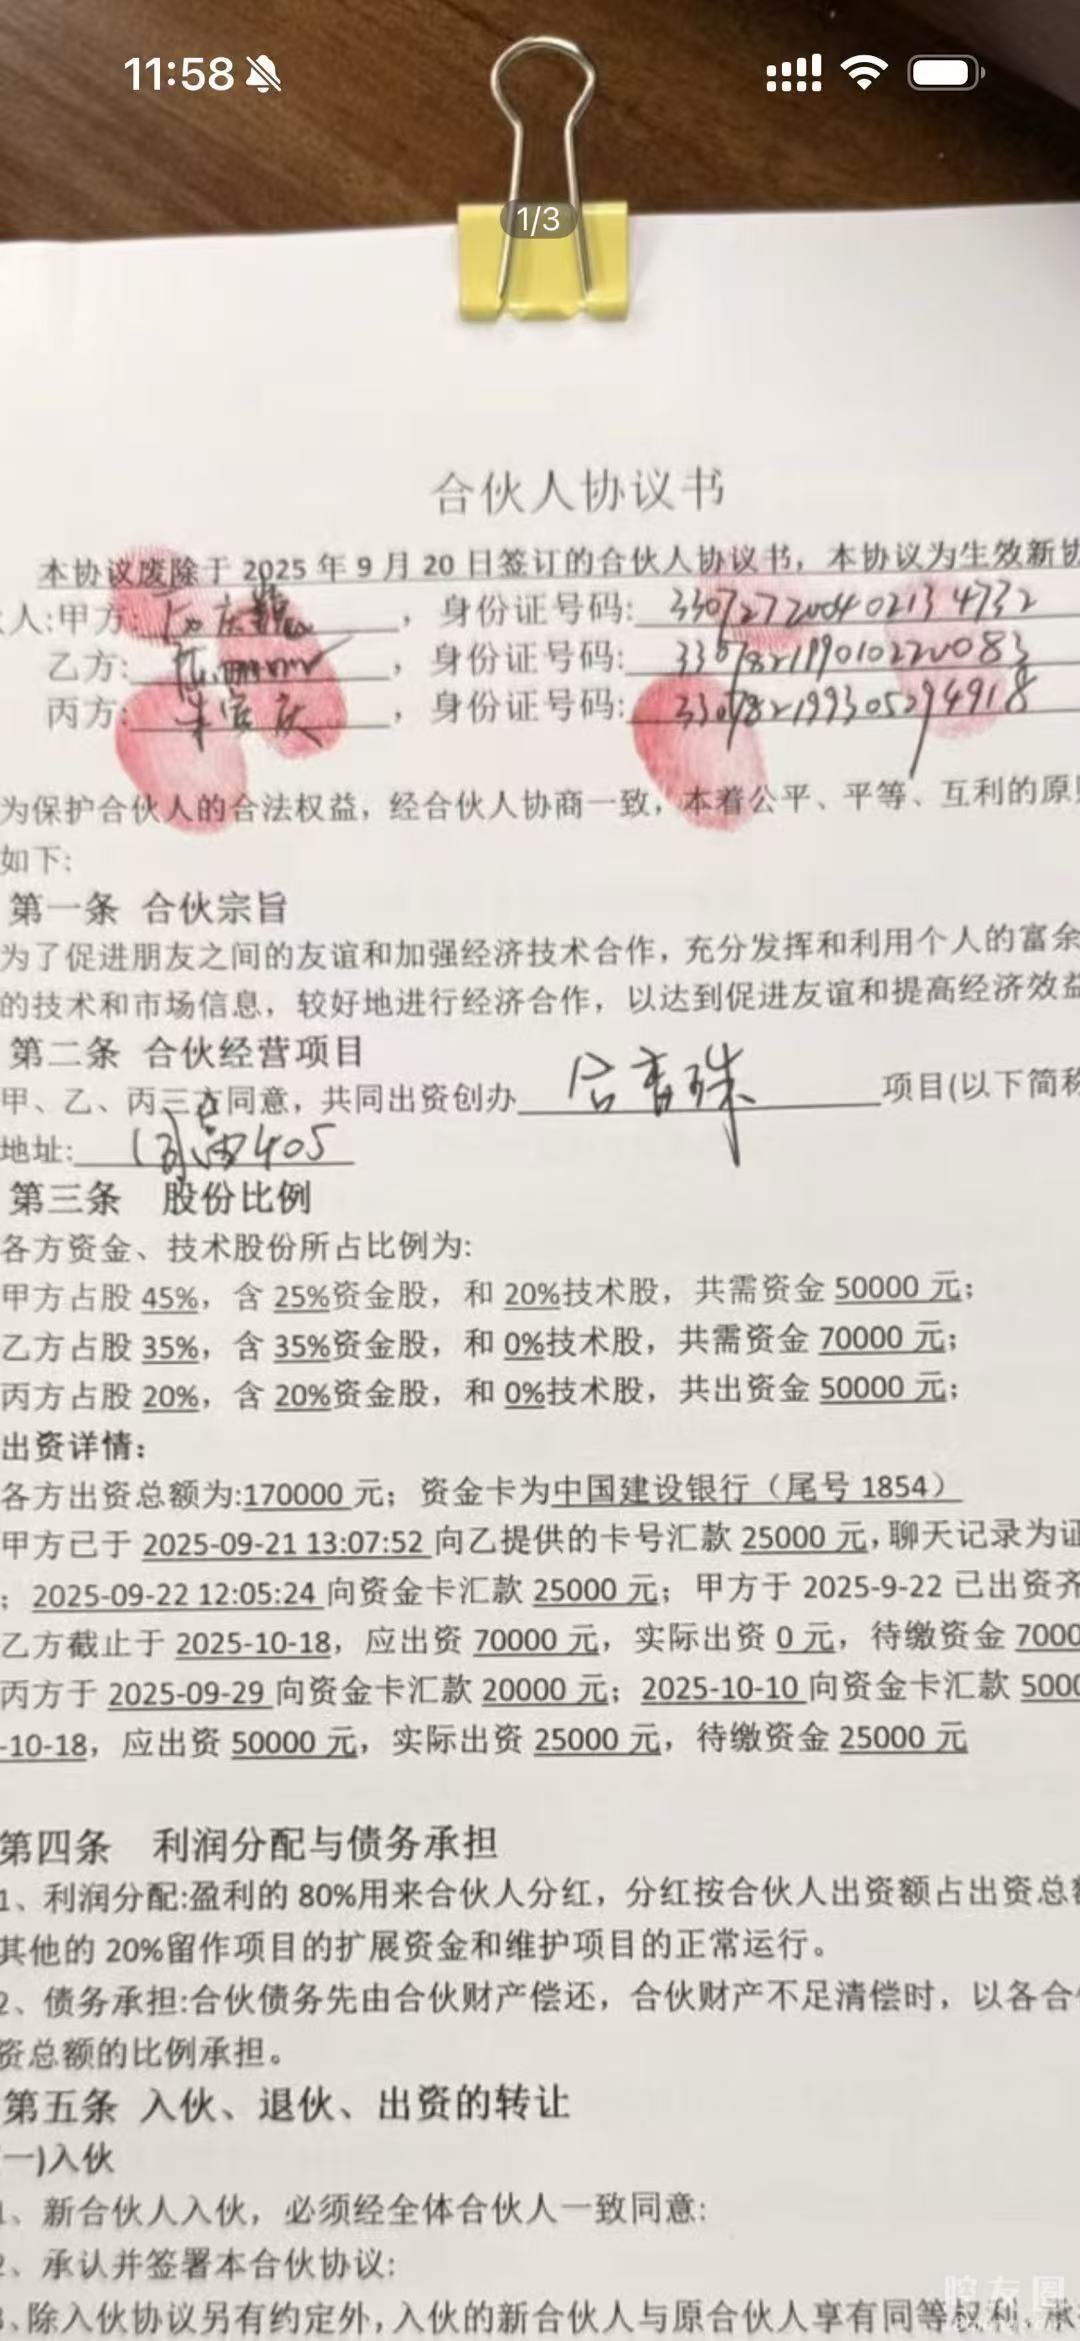 11:58
1/3
合伙人协议书
本协议废除于 2025 年 9 月 20 日签订的合伙人协议书，本协议为生效新协
人:甲方: ，身份证号码: 33072720040402134732
乙方: ，身份证号码: 330782199010220083
丙方: 朱宦庆，身份证号码: 330782199305294918
为保护合伙人的合法权益，经合伙人协商一致，本着公平、平等、互利的原则
如下:
第一条 合伙宗旨
为了促进朋友之间的友谊和加强经济技术合作，充分发挥和利用个人的富余
的技术和市场信息，较好地进行经济合作，以达到促进友谊和提高经济效益
第二条 合伙经营项目
甲、乙、丙三方同意，共同出资创办 合香珠 项目(以下简称
地址: 405
第三条 股份比例
各方资金、技术股份所占比例为:
甲方占股 45%，含 25%资金股，和 20%技术股，共需资金 50000 元；
乙方占股 35%，含 35%资金股，和 0%技术股，共需资金 70000 元；
丙方占股 20%，含 20%资金股，和 0%技术股，共出资金 50000 元；
出资详情：
各方出资总额为:170000 元；资金卡为中国建设银行（尾号 1854）
甲方已于 2025-09-21 13:07:52 向乙提供的卡号汇款 25000 元，聊天记录为证
；2025-09-22 12:05:24 向资金卡汇款 25000 元；甲方于 2025-9-22 已出资齐
乙方截止于 2025-10-18，应出资 70000 元，实际出资 0 元，待缴资金 7000
丙方于 2025-09-29 向资金卡汇款 20000 元；2025-10-10 向资金卡汇款 500
-10-18，应出资 50000 元，实际出资 25000 元，待缴资金 25000 元
第四条 利润分配与债务承担
1、利润分配:盈利的 80%用来合伙人分红，分红按合伙人出资额占出资总额
其他的 20%留作项目的扩展资金和维护项目的正常运行。
2、债务承担:合伙债务先由合伙财产偿还，合伙财产不足清偿时，以各合
资总额的比例承担。
第五条 入伙、退伙、出资的转让
一)入伙
1、新合伙人入伙，必须经全体合伙人一致同意:
2、承认并签署本合伙协议:
3、除入伙协议另有约定外，入伙的新合伙人与原合伙人享有同等权利，承